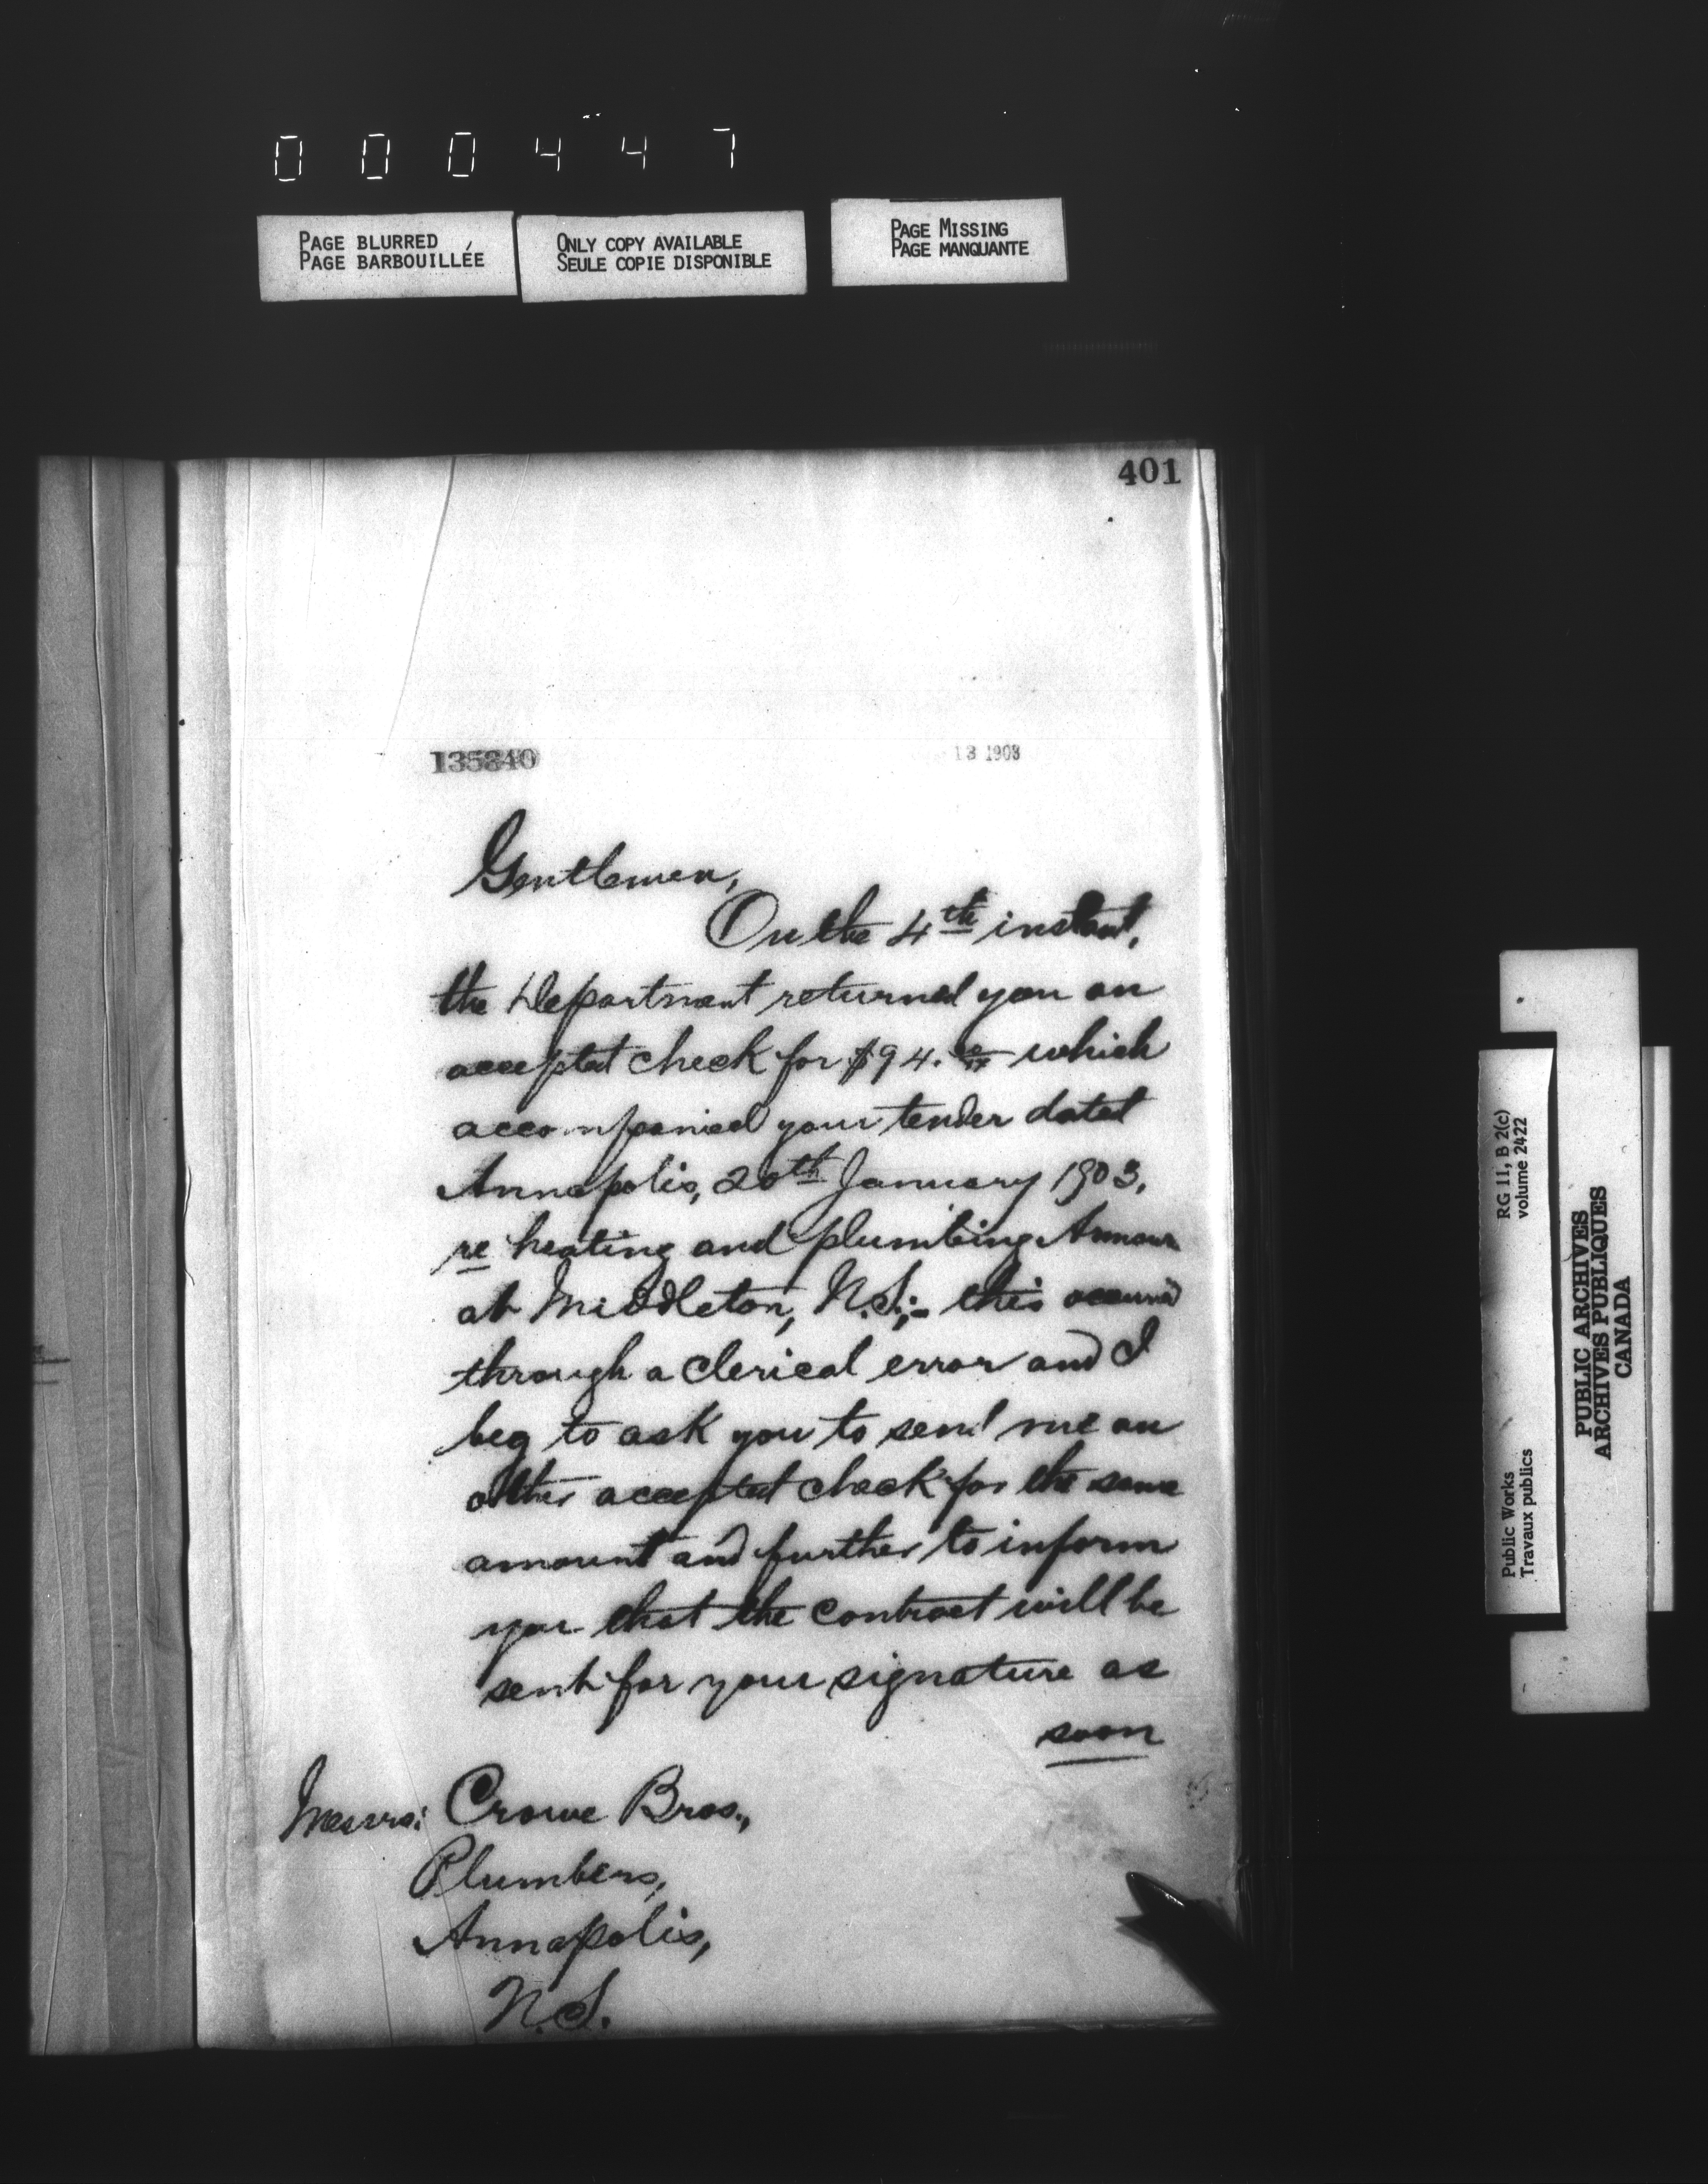 000447
PAGE BLURRED
PAGE BARBOUILLÉE
ONLY COPY AVAILABLE
SEULE COPIE DISPONIBLE
PAGE MISSING
PAGE MANQUANTE
401
135840
13 1903
Gentlemen,
On the 4th instant,
the Department returned you an
accepted check for $94. which
accompanied your tender dated
Annapolis, 20th January 1903,
re heating and plumbing
at Middleton, N.S.;- this occurred
through a clerical error and I
beg to ask you to send me an
other accepted check for the same
amount and further to inform
you that the contract will be
sent for your signature as
soon
Messrs: Crowe Bros.,
Plumbers,
Annapolis,
N.S.
RG 11, B 2(c)
volume 2422
Public Works
Travaux publics
PUBLIC ARCHIVES
ARCHIVES PUBLIQUES
CANADA